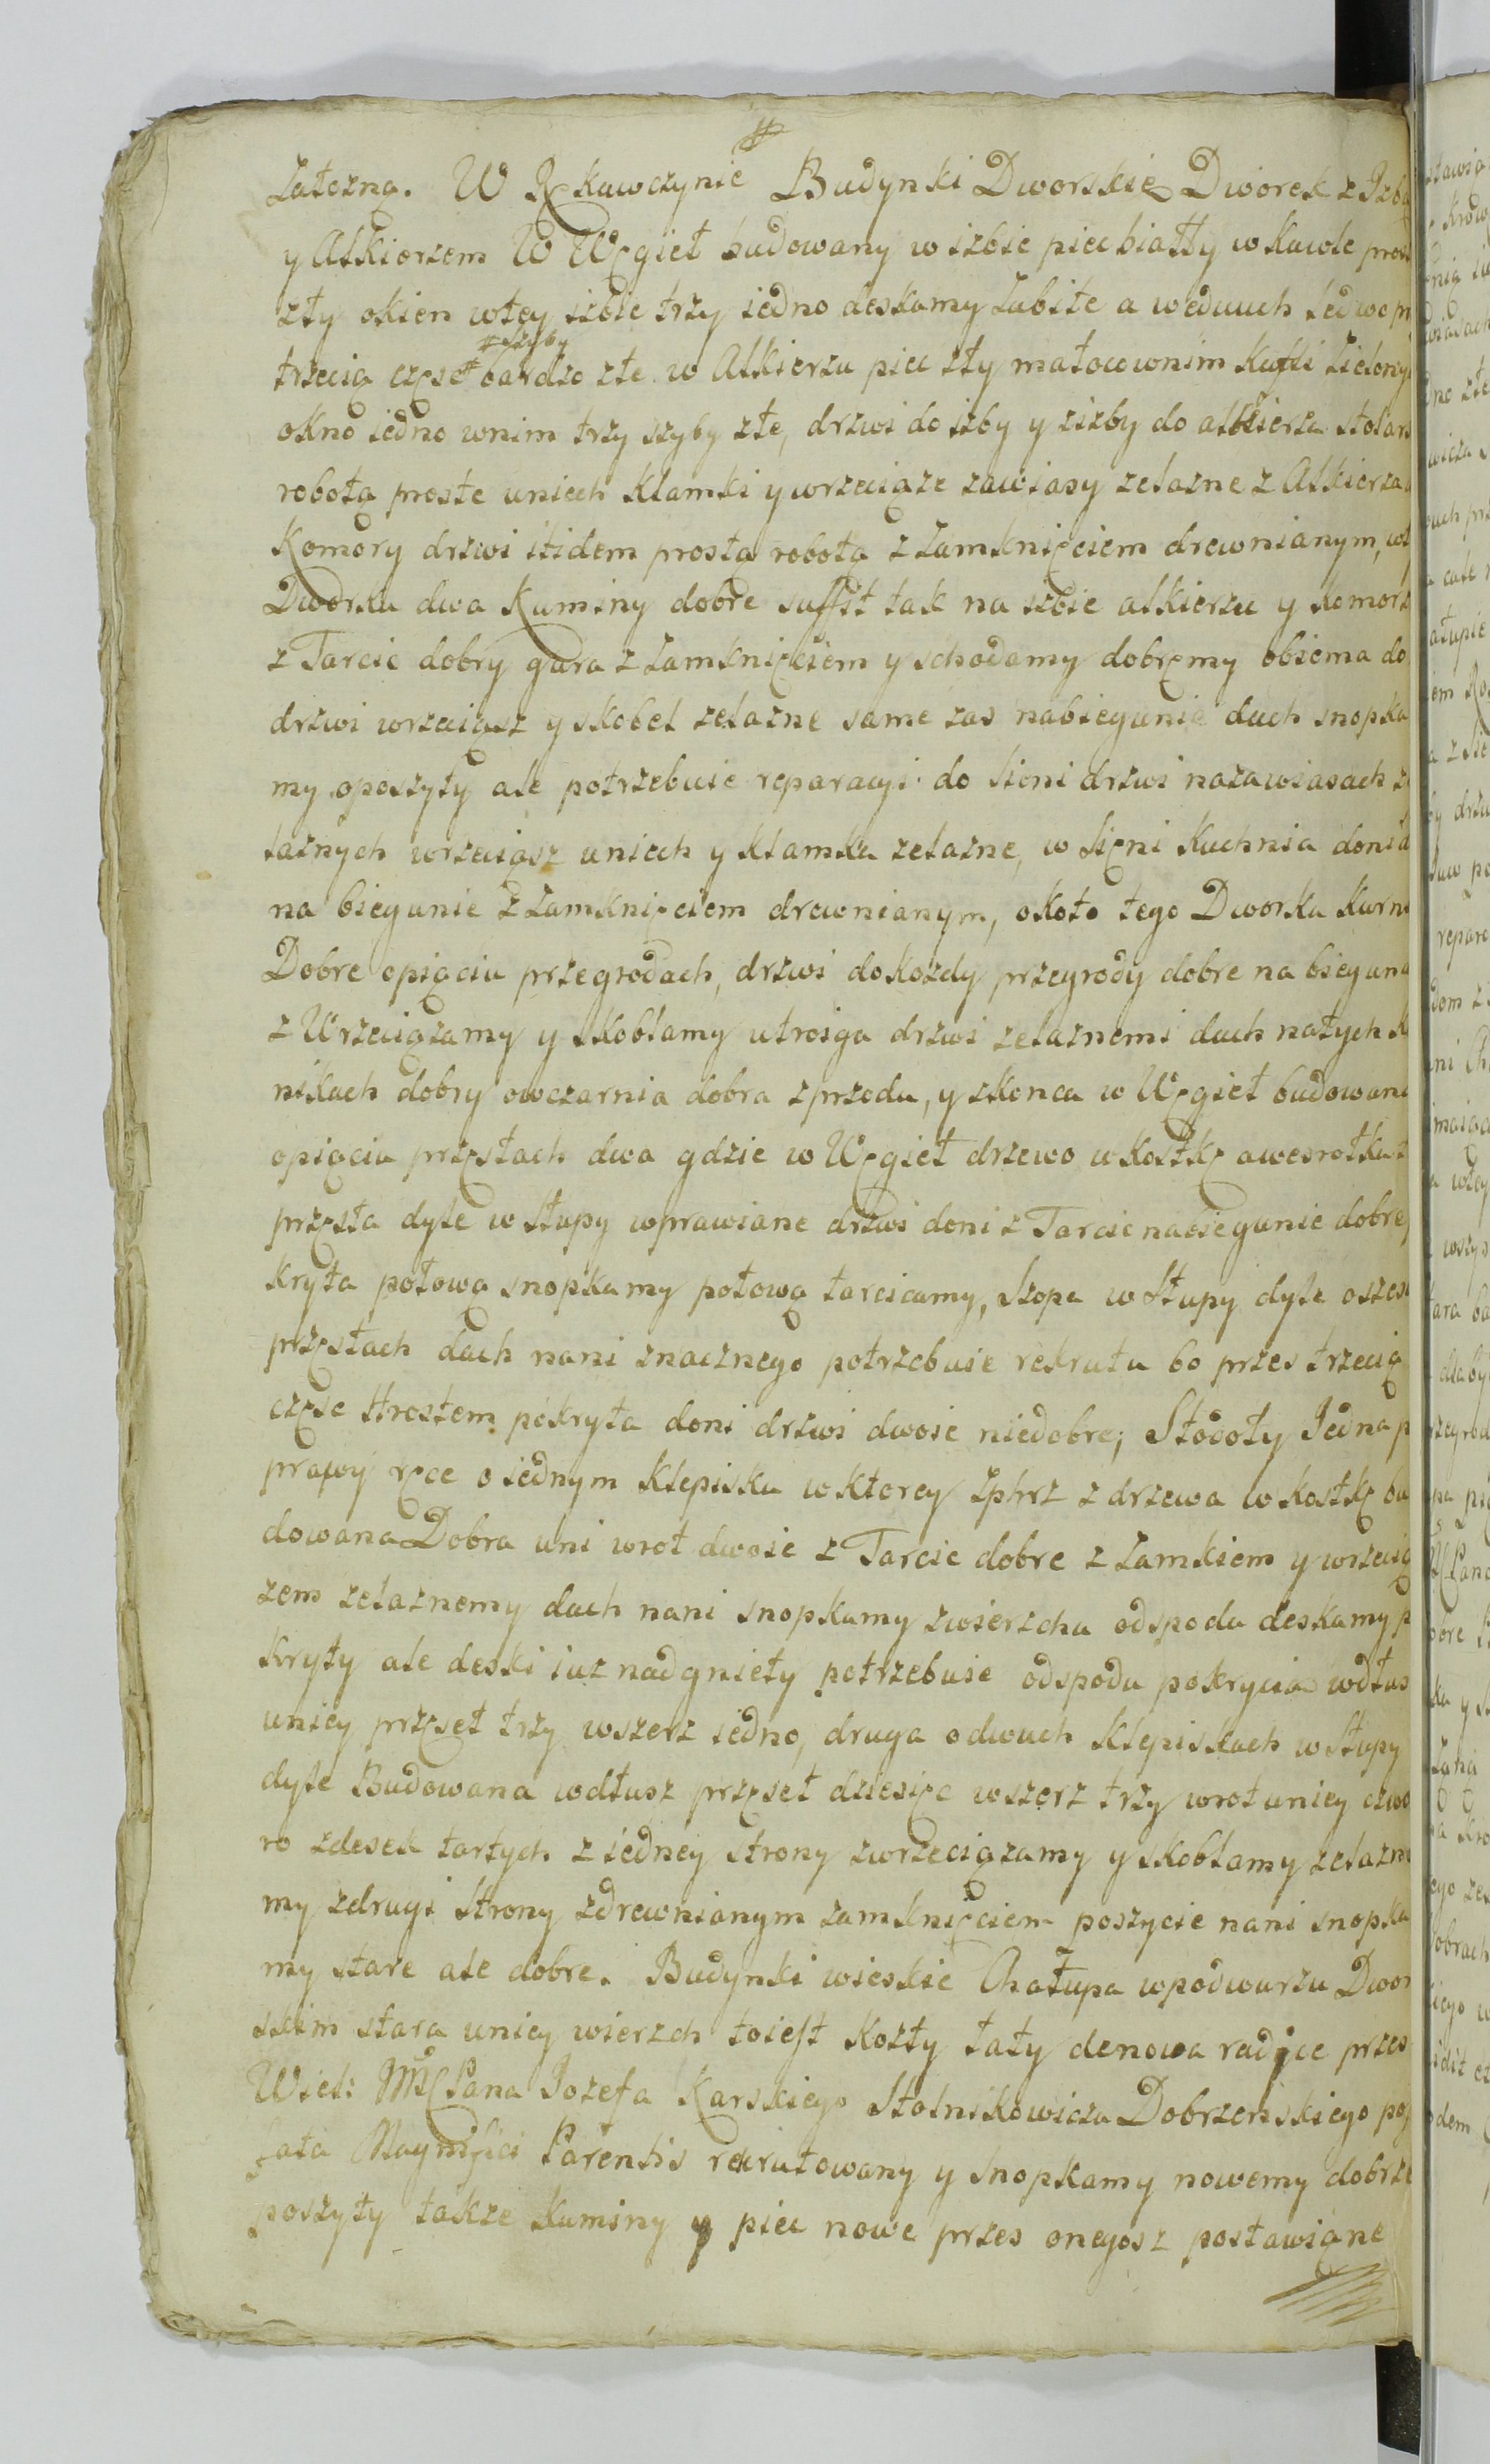 #
Załozną. W Rękawczynie Budynki Dworskie Dworek z Izbą
y Alkierzem W Węgieł budowany w izbie piec biały w kawle pros
zły okien wtey izbie trzy iedno deskamy zabite a wedwuch ledwo
trzecią częsc #szyby bardzo złe. w Alkierzu piec zły mało cownim Kafli Zielony
okno iedno wnim trzy szyby złe, drzwi do izby y zizby do alkierza stolars
robotą proste unich Klamki y wrzeciąze zawiasy zelazne z Alkierza
Komory drzwi itidem prostą robotą z zamknięciem drewnianym,
Dworku dwa Kuminy dobre suffit tak na izbie alkierzu y Komorz
z Tarcic dobry gura z zamknięciem y schodamy dobręmy obiema do
drzwi wrzeciąsz y skobel zelazne same zas nabiegunie dach snopka
my oposzyty ale potrzebuie reparacyi do sieni drzwi nazawiasach z
laznych wrzeciąsz unich y klamka zelazne, w Sięni Kuchnia donid
na biegunie z zamknięciem drewnianym, około tego Dworku Kurni
Dobre opiąciu przegrodach, drzwi dokozdy przegrody dobre na bieguna
z Wrzeciązamy y skoblamy utroiga drzwi zelaznemi dach natych K
nikach dobry owczarnia dobra zprzodu, y zkonca w Węgieł budowana
opiąciu przęsłach dwa gdzie w Węgieł drzewo w kostkę
przęsła dyle w słupy wprawiane drzwi doni z Tarcic nabiegunie dobre,
kryta połową snopkamy połową tarcicamy, Szopa w Słupy dyle oszes
przęsłach dach nani znacznego potrzebuie rekrutu bo przes trzecią
częsc Hrostem pokryta doni drzwi dwoie niedobre; Stodoły Jedna p
prawy ręce o iednym Klepisku w ktorey Zphrz z drzewa w kostkę bu
dowana Dobra uni wrot dwoie z Tarcic dobre z zamkiem y wrzecią
zem zelaznemy dach nani snopkamy zwierzchu odspodu deskamy p
kryty ale deski iuz nadgnieły potrzebuie odspodu pokrycia wdłus
uniey przęseł trzy wszerz iedno, druga odwuch Klepiskach w słupy
dyle Budowana wdłusz przęseł dziesięc wszerz trzy wrot uniey czwo
ro zdesek tartych z iedney strony zwrzeciązamy y skoblamy zelazne
my zdrugi strony zdrewnianym zamknięciem poszycie nani snopka
my stare ale dobre. Budynki wieskie Chałupa wpodwurzu Dwor
skim stara uniey wierzch toiest Kozły łaty denowa radice przes
Wiel: JMCPana Jozefa Karskiego Stolnikowicza Dobrzenskiego po
fata Magnifici Parentis rekrutowany y snopkamy nowemy dobrze
poszyty takze kuminy y piec nowe przes onegosz postawiąne